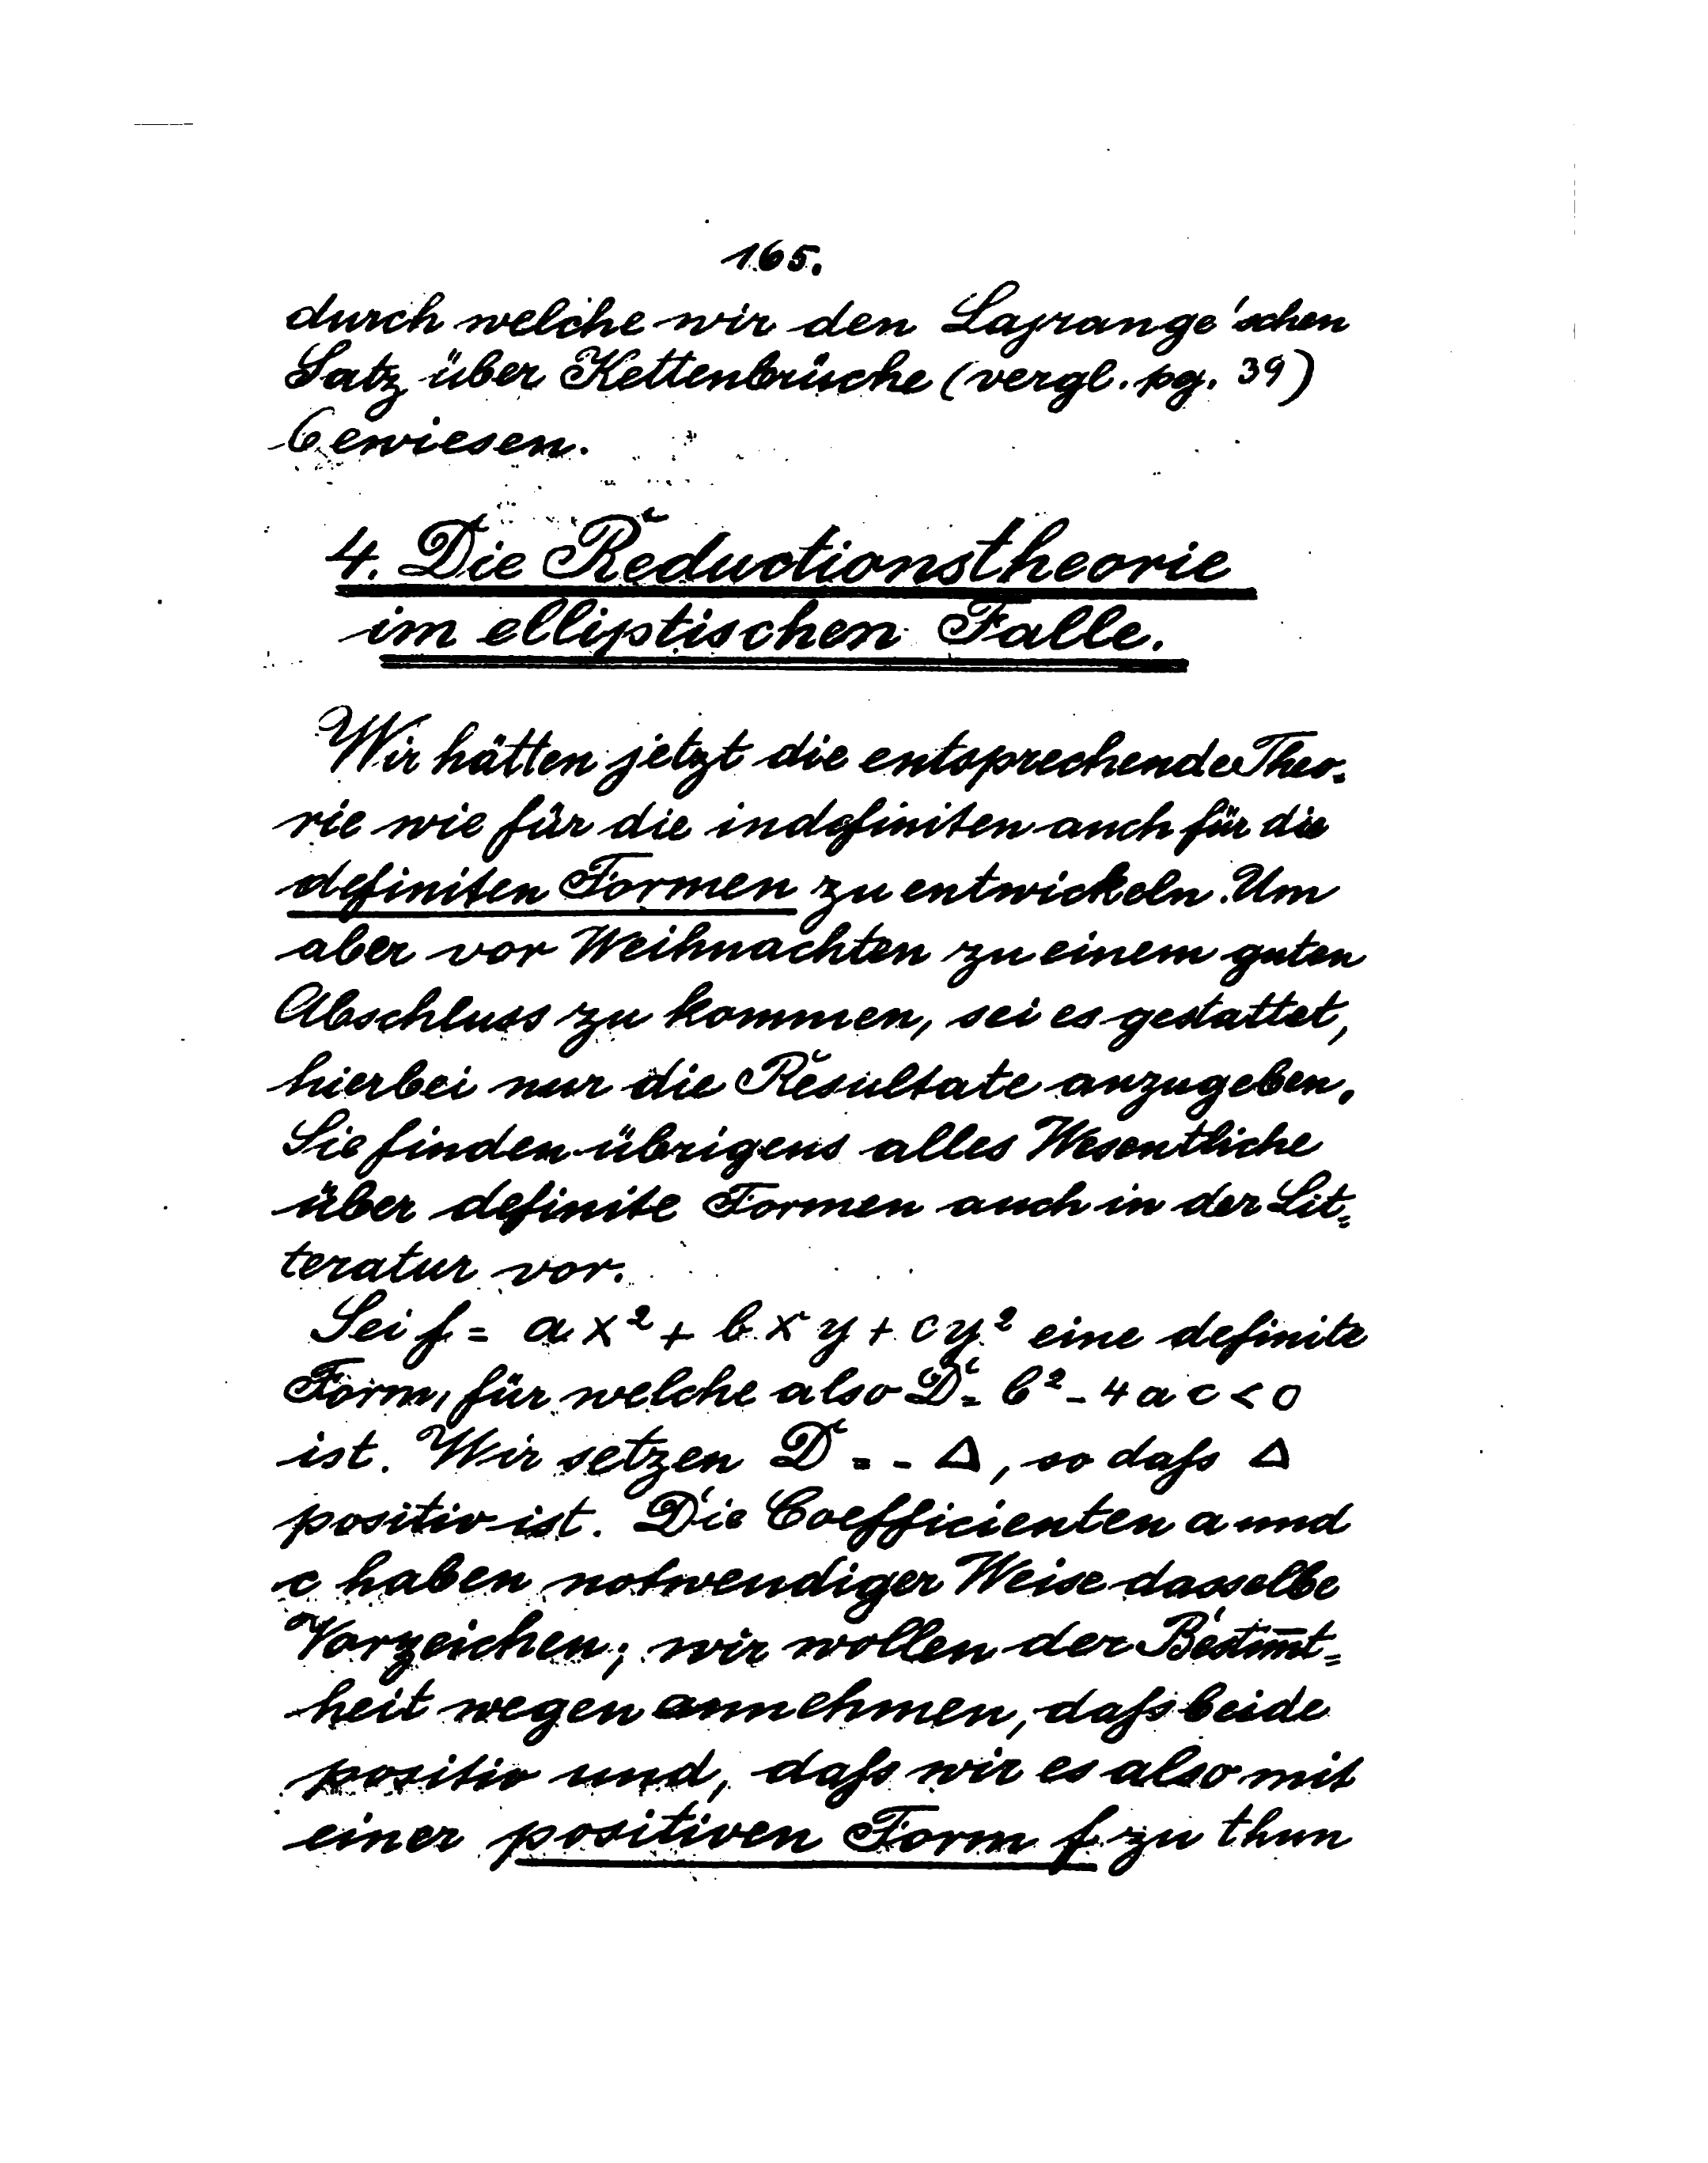 165.
durch welche wir den Lagrange'schen
Satz über Kettenbrüche (vergl. pg. 39)
bewiesen.
4. Die Reductionstheorie
im elliptischen Falle.
Wir hätten jetzt die entsprechende Theo-
rie wie für die indefiniten auch für die
definiten Formen zu entwickeln. Um
aber vor Weihnachten zu einem guten
Abschluss zu kommen, sei es gestattet,
hierbei nur die Resultate anzugeben.
Sie finden übrigens alles Wesentliche
über definite Formen auch in der Lit=
teratur vor.
Sei f = ax² + bxy + cy² eine definite
Form, für welche also D = b² - 4ac < 0
ist. Wir setzen D = - Δ, so daſs Δ
positiv ist. Die Coefficienten a und
c haben notwendiger Weise dasselbe
Vorzeichen; wir wollen der Bestim̅t=
heit wegen annehmen, daſs beide
positiv und, daſs wir es also mit
einer positiven Form f zu thun